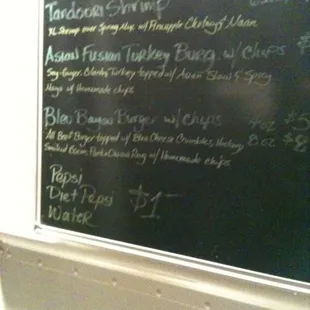 Tandoori Shrimp
XL Shrimp over Spring Mix w/ Pineapple Chutney & Naan
Asian Fusion Turkey Burg. w/ Chips
Soy-Ginger Turkey topped w/ Asian Slaw & Spicy
Mayo w/ Homemade chips
Bleu Bayou Burger w/ Chips 4 oz $5
All Beef Burger topped w/ Bleu Cheese Crumbles, 8 oz $8
Bacon, Onion Ring w/ Homemade chips
Pepsi
Diet Pepsi $1
Water